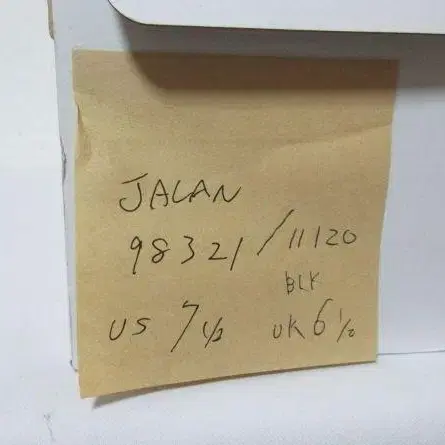 JALAN
98321/11120
BLK
US 7 1/2 UK 6 1/2